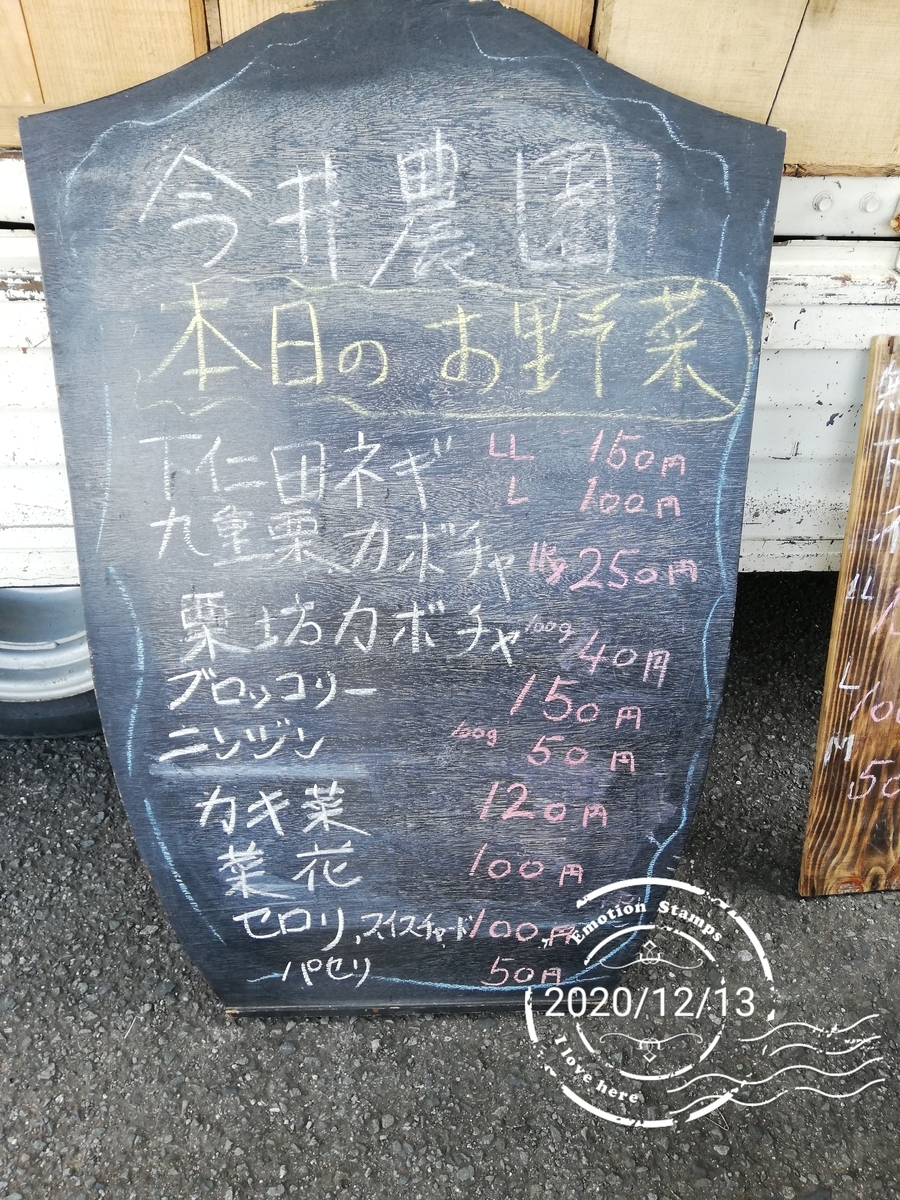 今井農園
本日のお野菜
下仁田ネギ LL 150円
L 100円
九重栗カボチャ 1kg 250円
栗坊カボチャ 100g 40円
ブロッコリー 150円
ニンジン 100g 50円
カキ菜 120円
菜花 100円
セロリ、スイスチャード 100円
パセリ 50円
無
下
LL
L 100
M
50
Emotion Stamps
2020/12/13
I love here